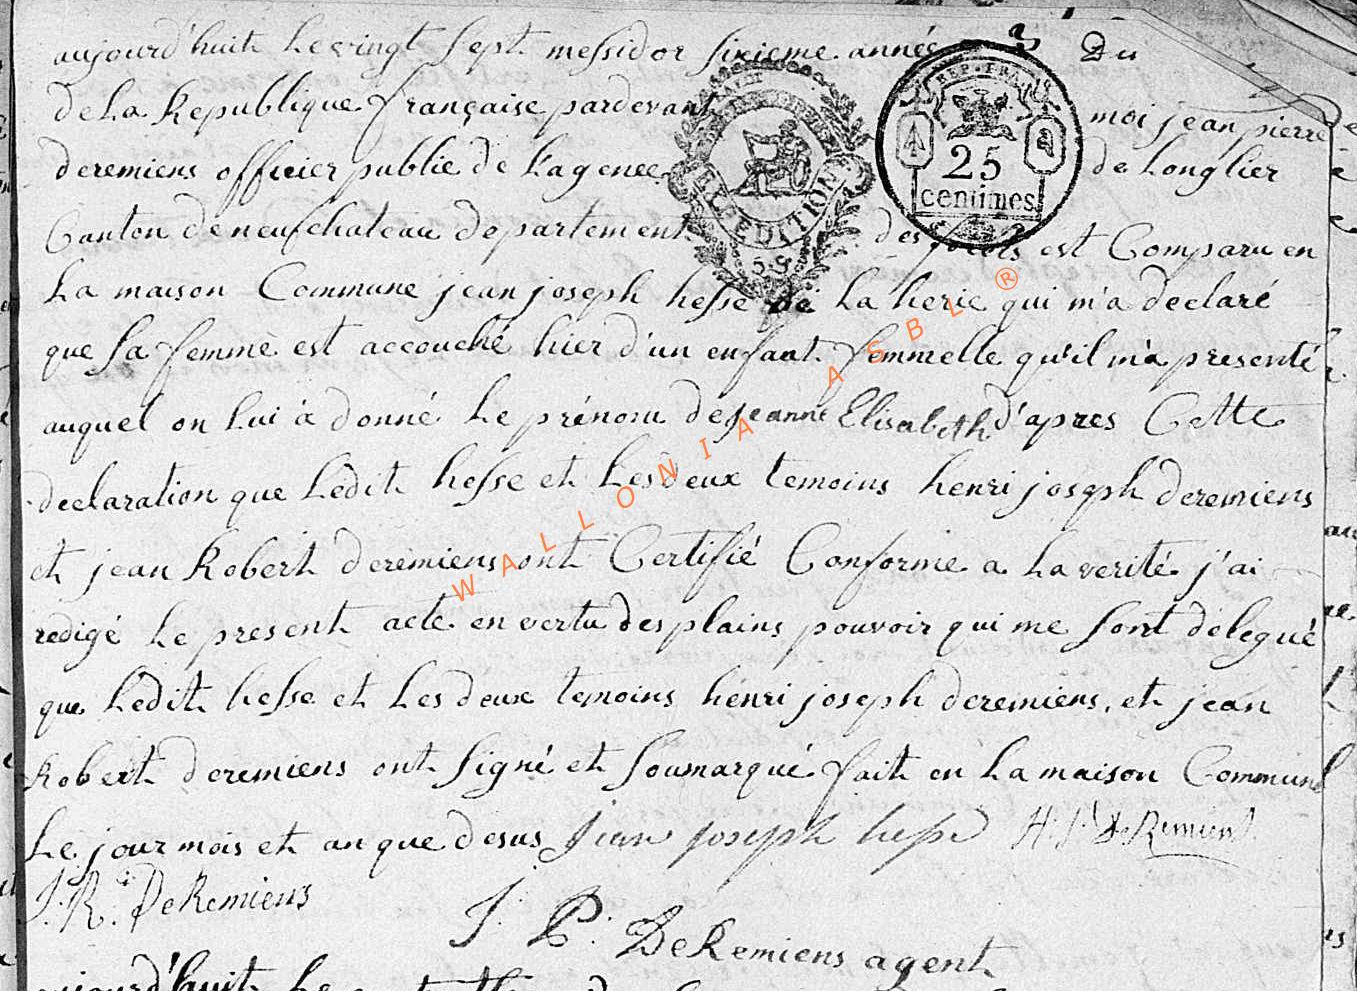 aujourd'huit le vingt sept messidor sixieme année Du
de La Republique française pardevant moi jean pierre
deremiens officier public de L'agence de Longlier
Canton de neufchateau departement des forets est Comparu en
La maison Commune jean joseph hesse de La herie qui m'a declaré
que sa femme est accouché hier d'un enfant femmelle qu'il m'a presenté
auquel on lui à donné Le prénom de jeanne Elisabeth d'apres Cette
declaration que Ledit hesse et Les deux temoins henri joseph deremiens
et jean Robert deremiens ont Certifié Conforme a La verité j'ai
redigé Le present acte en vertu des plains pouvoir qui me sont délegué
que Ledit hesse et Les deux temoins hénri joseph deremiens, et jean
Robert deremiens ont signé et soumarqué fait en La maison Commune
Le jour mois et an que desus jean joseph hesse H. J. DeRemiens
J. R. DeRemiens
J. P. DeRemiens agent
REP. FRA.
25
centimes
EXPEDITION
WALLONIA ASBL ®
aujourd'huit Le